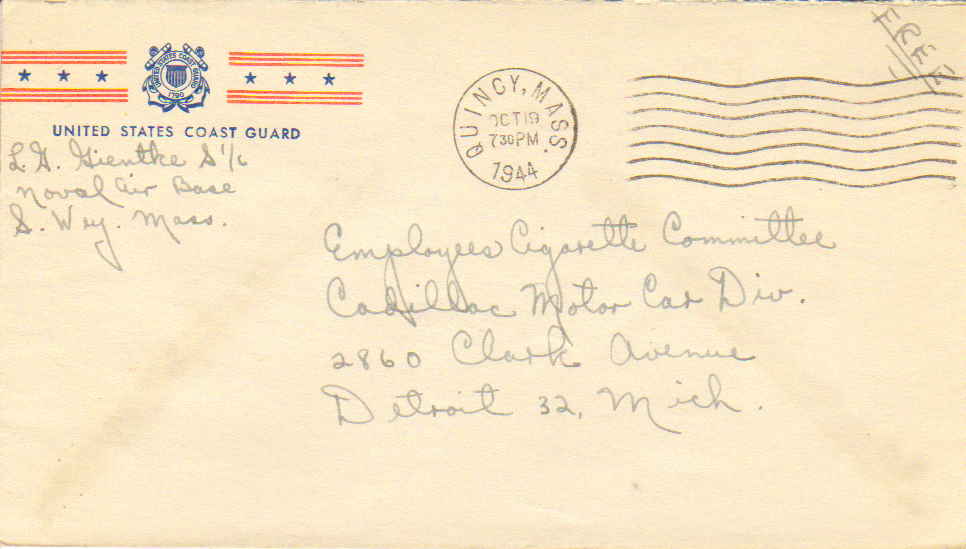 FREE
UNITED STATES COAST GUARD
1790
UNITED STATES COAST GUARD
L. G. Gientke S 1/c
Naval Air Base
S. Wey. Mass.
QUINCY, MASS.
OCT 19
7 30 PM
1944
Employees Cigarette Committee
Cadillac Motor Car Div.
2860 Clark Avenue
Detroit 32, Mich.